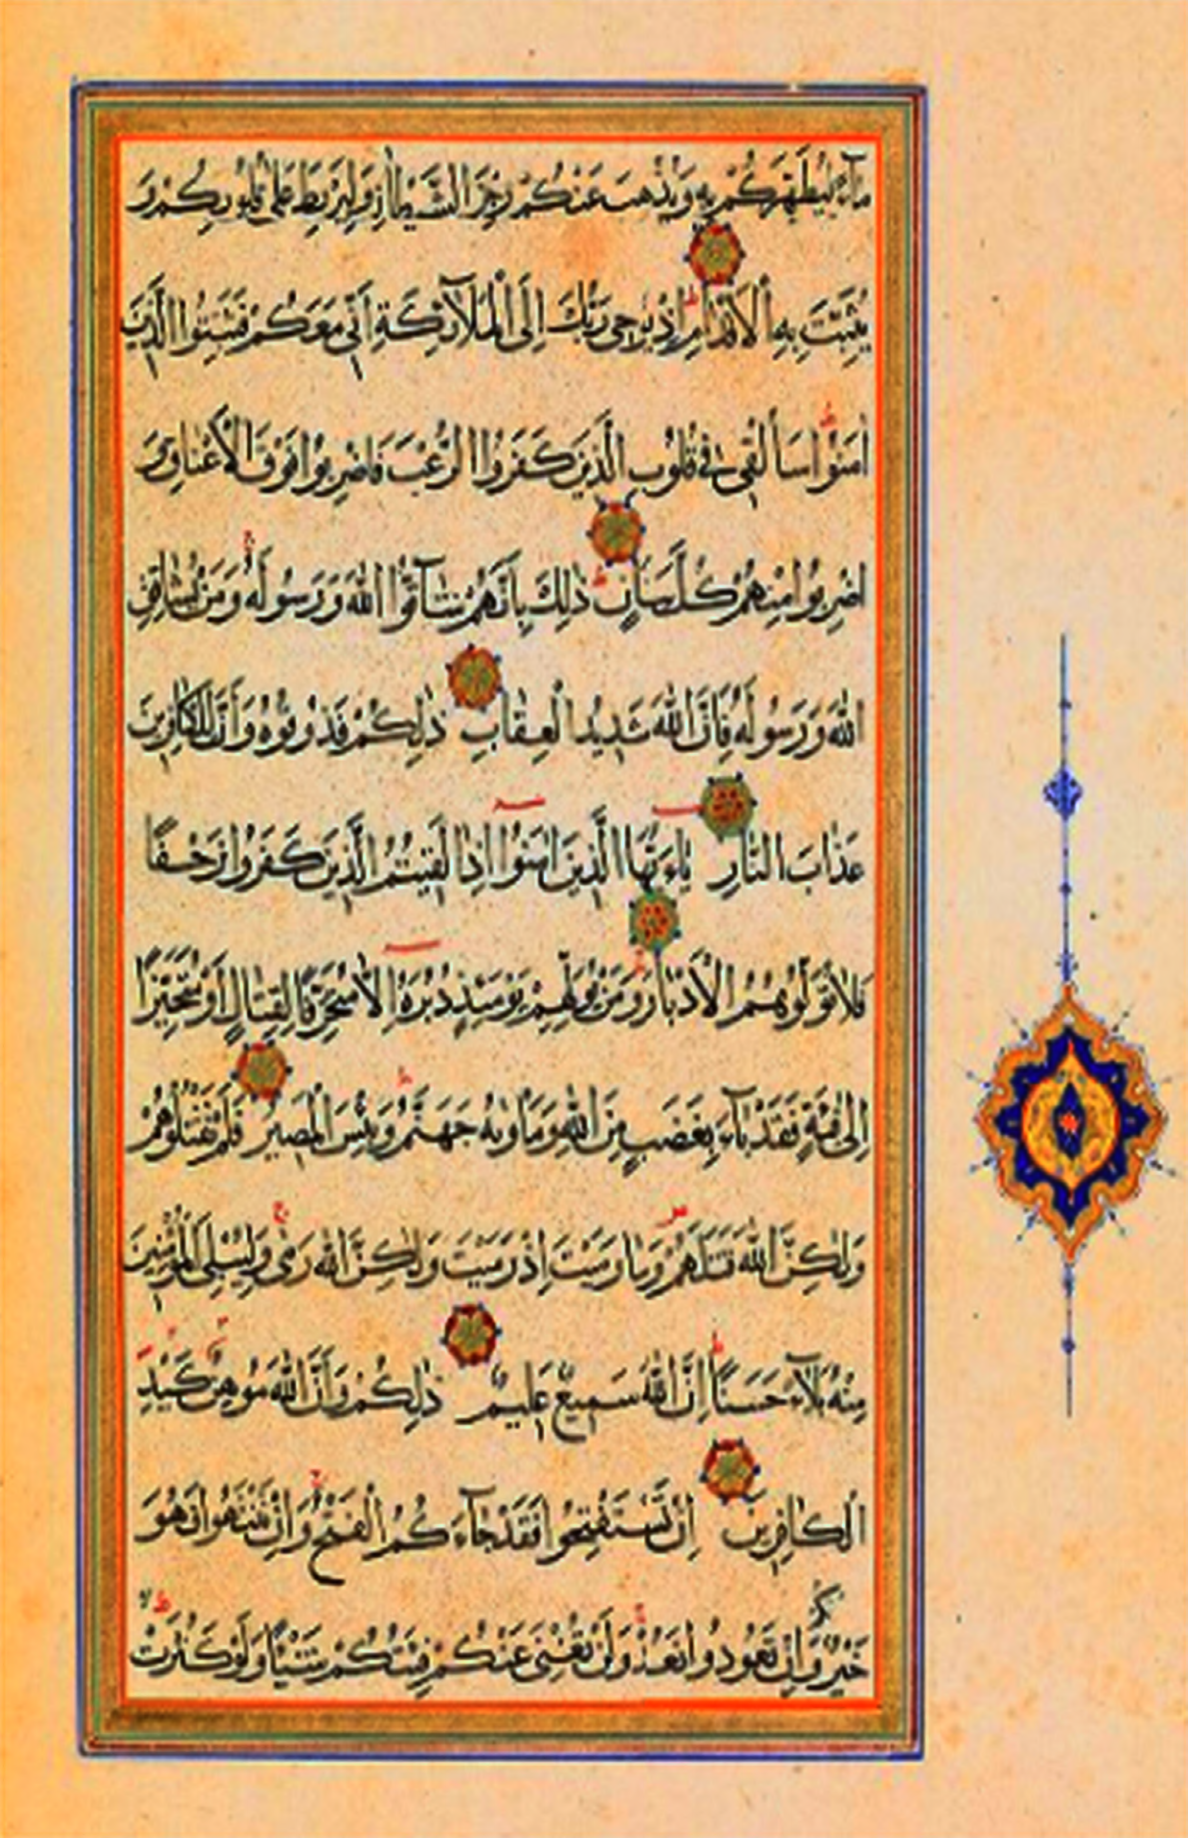 مَآءً لِيُطَهِّرَكُمْ بِهِ وَيُذْهِبَ عَنْكُمْ رِجْزَ الشَّيْطَانِ وَلِيَرْبِطَ عَلَى قُلُوبِكُمْ وَ
يُثَبِّتَ بِهِ الْأَقْدَامَ إِذْ يُوحِى رَبُّكَ إِلَى الْمَلَآئِكَةِ أَنِّى مَعَكُمْ فَثَبِّتُوا الَّذِينَ
اٰمَنُوا سَأُلْقِى فِى قُلُوبِ الَّذِينَ كَفَرُوا الرُّعْبَ فَاضْرِبُوا فَوْقَ الْأَعْنَاقِ وَ
اضْرِبُوا مِنْهُمْ كُلَّ بَنَانٍ ذٰلِكَ بِأَنَّهُمْ شَآقُّوا اللّٰهَ وَرَسُولَهُ وَمَنْ يُشَاقِقِ
اللّٰهَ وَرَسُولَهُ فَإِنَّ اللّٰهَ شَدِيدُ الْعِقَابِ ذٰلِكُمْ فَذُوقُوهُ وَأَنَّ لِلْكَافِرِينَ
عَذَابَ النَّارِ يَاءَيُّهَا الَّذِينَ اٰمَنُوا إِذَا لَقِيتُمُ الَّذِينَ كَفَرُوا زَحْفًا
فَلَا تُوَلُّوهُمُ الْأَدْبَارَ وَمَنْ يُوَلِّهِمْ يَوْمَئِذٍ دُبُرَهُ إِلَّا مُتَحَرِّفًا لِقِتَالٍ أَوْ مُتَحَيِّزًا
إِلَى فِئَةٍ فَقَدْ بَآءَ بِغَضَبٍ مِنَ اللّٰهِ وَمَأْوٰيهُ جَهَنَّمُ وَبِئْسَ الْمَصِيرُ فَلَمْ تَقْتُلُوهُمْ
وَلٰكِنَّ اللّٰهَ قَتَلَهُمْ وَمَا رَمَيْتَ إِذْ رَمَيْتَ وَلٰكِنَّ اللّٰهَ رَمٰى وَلِيُبْلِىَ الْمُؤْمِنِينَ
مِنْهُ بَلَآءً حَسَنًا إِنَّ اللّٰهَ سَمِيعٌ عَلِيمٌ ذٰلِكُمْ وَأَنَّ اللّٰهَ مُوهِنُ كَيْدِ
الْكَافِرِينَ إِنْ تَسْتَفْتِحُوا فَقَدْ جَآءَكُمُ الْفَتْحُ وَإِنْ تَنْتَهُوا فَهُوَ
خَيْرٌ لَكُمْ وَإِنْ تَعُودُوا نَعُدْ وَلَنْ تُغْنِىَ عَنْكُمْ فِئَتُكُمْ شَيْئًا وَلَوْ كَثُرَتْ